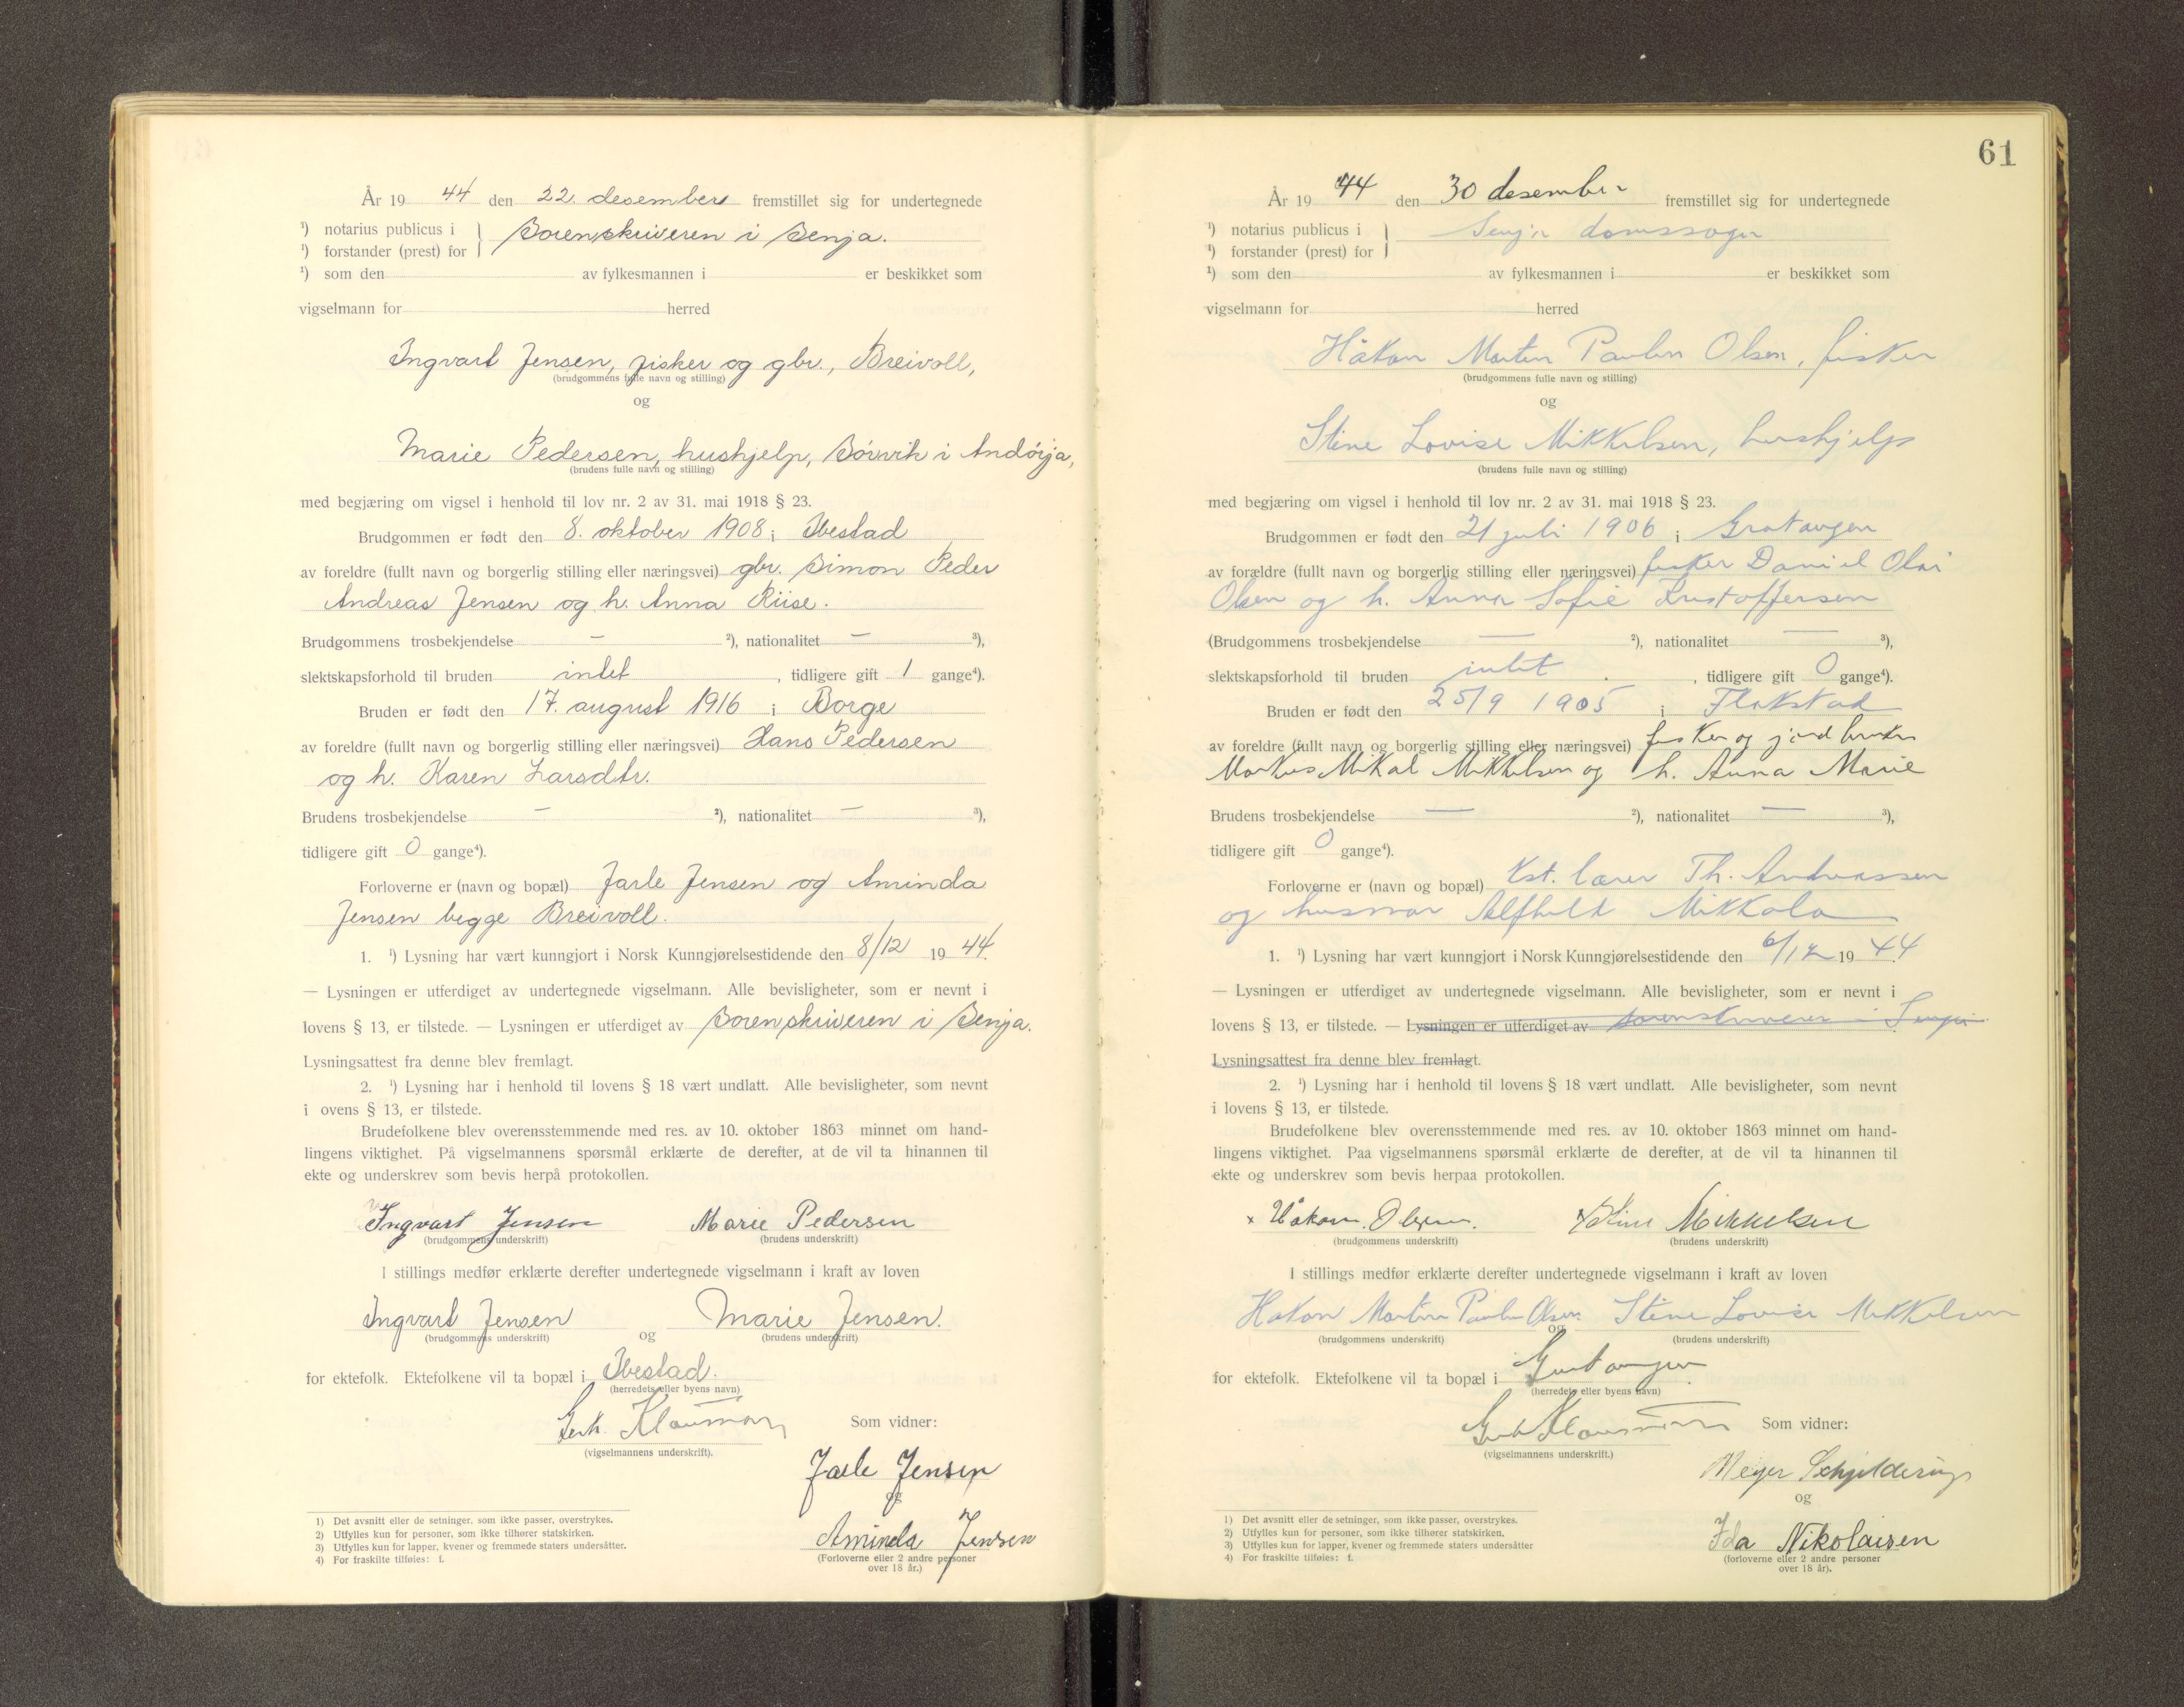 År 19 44 den 22. desember fremstillet sig for undertegnede
¹) notarius publicus i
¹) forstander (prest) for } Sorenskriveren i Senja.
¹) som den av fylkesmannen i er beskikket som
vigselmann for herred
Ingvart Jensen, fisker og gbr., Breivoll,
(brudgommens fulle navn og stilling)
og
Marie Pedersen, hushjelp, Sørvik i Andörja,
(brudens fulle navn og stilling)
med begjæring om vigsel i henhold til lov nr. 2 av 31. mai 1918 § 23.
Brudgommen er født den 8. oktober 1908 i Ibestad
av foreldre (fullt navn og borgerlig stilling eller næringsvei) gbr. Simon Peder
Andreas Jensen og h. Anna Riise.
Brudgommens trosbekjendelse — ²), nationalitet — ³),
slektskapsforhold til bruden intet, tidligere gift 1 gange⁴).
Bruden er født den 17. august 1916 i Borge
av foreldre (fullt navn og borgerlig stilling eller næringsvei) Hans Pedersen
og h. Karen Larsdtr.
Brudens trosbekjendelse — ²), nationalitet — ³),
tidligere gift 0 gange⁴).
Forloverne er (navn og bopæl) Jarle Jensen og Aminda
Jensen begge Breivoll.
1. ¹) Lysning har vært kunngjort i Norsk Kunngjørelsestidende den 8/12 19 44.
— Lysningen er utferdiget av undertegnede vigselmann. Alle bevisligheter, som er nevnt i
lovens § 13, er tilstede. — Lysningen er utferdiget av Sorenskriveren i Senja.
Lysningsattest fra denne blev fremlagt.
2. ¹) Lysning har i henhold til lovens § 18 vært undlatt. Alle bevisligheter, som nevnt
i ovens § 13, er tilstede.
Brudefolkene blev overensstemmende med res. av 10. oktober 1863 minnet om hand-
lingens viktighet. På vigselmannens spørsmål erklærte de derefter, at de vil ta hinannen til
ekte og underskrev som bevis herpå protokollen.
Ingvart Jensen Marie Pedersen
(brudgommens underskrift) (brudens underskrift)
I stillings medfør erklærte derefter undertegnede vigselmann i kraft av loven
Ingvart Jensen og Marie Jensen.
(brudgommens underskrift) (brudens underskrift)
for ektefolk. Ektefolkene vil ta bopæl i Ibestad.
(herredets eller byens navn)
Klausman Som vidner:
(vigselmannens underskrift).
Jarle Jensen
og
Aminda Jensen
(Forloverne eller 2 andre personer
over 18 år.)
1) Det avsnitt eller de setninger. som ikke passer, overstrykes.
2) Utfylles kun for personer, som ikke tilhører statskirken.
3) Utfylles kun for lapper, kvener og fremmede staters undersåtter.
4) For fraskilte tilføies: f.
61
År 19 44 den 30 desember fremstillet sig for undertegnede
¹) notarius publicus i
¹) forstander (prest) for } Senja domssogn
¹) som den av fylkesmannen i er beskikket som
vigselmann for herred
Håkon Martin Paulin Olsen, fisker
(brudgommens fulle navn og stilling)
og
Stine Lovise Mikkelsen, hushjelp
(brudens fulle navn og stilling)
med begjæring om vigsel i henhold til lov nr. 2 av 31. mai 1918 § 23.
Brudgommen er født den 21 juli 1906 i Gratangen
av forældre (fullt navn og borgerlig stilling eller næringsvei) fisker Daniel Olai
Olsen og h. Anna Sofie Kristoffersen
(Brudgommens trosbekjendelse — ²), nationalitet — ³),
slektskapsforhold til bruden intet, tidligere gift 0 gange⁴).
Bruden er født den 25/9 1905 i Flakstad
av foreldre (fullt navn og borgerlig stilling eller næringsvei) fisker og jordbruker
Markus Mikal Mikkelsen og h. Anna Marie
Brudens trosbekjendelse — ²), nationalitet — ³),
tidligere gift 0 gange⁴).
Forloverne er (navn og bopæl) Kst. lærer Th. Andreassen
og husmor Alfhild Mikkola
1. ¹) Lysning har vært kunngjort i Norsk Kunngjørelsestidende den 6/12 19 44
— Lysningen er utferdiget av undertegnede vigselmann. Alle bevisligheter, som er nevnt i
lovens § 13, er tilstede. — Lysningen er utferdiget av sorenskriveren i Senja
Lysningsattest fra denne blev fremlagt.
2. ¹) Lysning har i henhold til lovens § 18 vært undlatt. Alle bevisligheter, som nevnt
i lovens § 13, er tilstede.
Brudefolkene blev overensstemmende med res. av 10. oktober 1863 minnet om hand-
lingens viktighet. Paa vigselmannens spørsmål erklærte de derefter, at de vil ta hinannen til
ekte og underskrev som bevis herpaa protokollen.
x Håkon. Olsen. x Stine Mikkelsen
(brudgommens underskrift) (brudens underskrift)
I stillings medfør erklærte derefter undertegnede vigselmann i kraft av loven
Hakon Martin Paulin Olsen og Stine Lovise Mikkelsen
(brudgommens underskrift) (brudens underskrift)
for ektefolk. Ektefolkene vil ta bopæl i Gratangen.
(herredets eller byens navn)
Klausman Som vidner:
(vigselmannens underskrift.)
Meyer Schjelderup
og
Ida Nikolaisen
(forloverne eller 2 andre personer
over 18 år).
1) Det avsnitt eller de setninger, som ikke passer, overstrykes.
2) Utfylles kun for personer, som ikke tilhører statskirken.
3) Utfylles kun for lapper, kvener og fremmede staters undersåtter
4) For fraskilte tilføies: f.